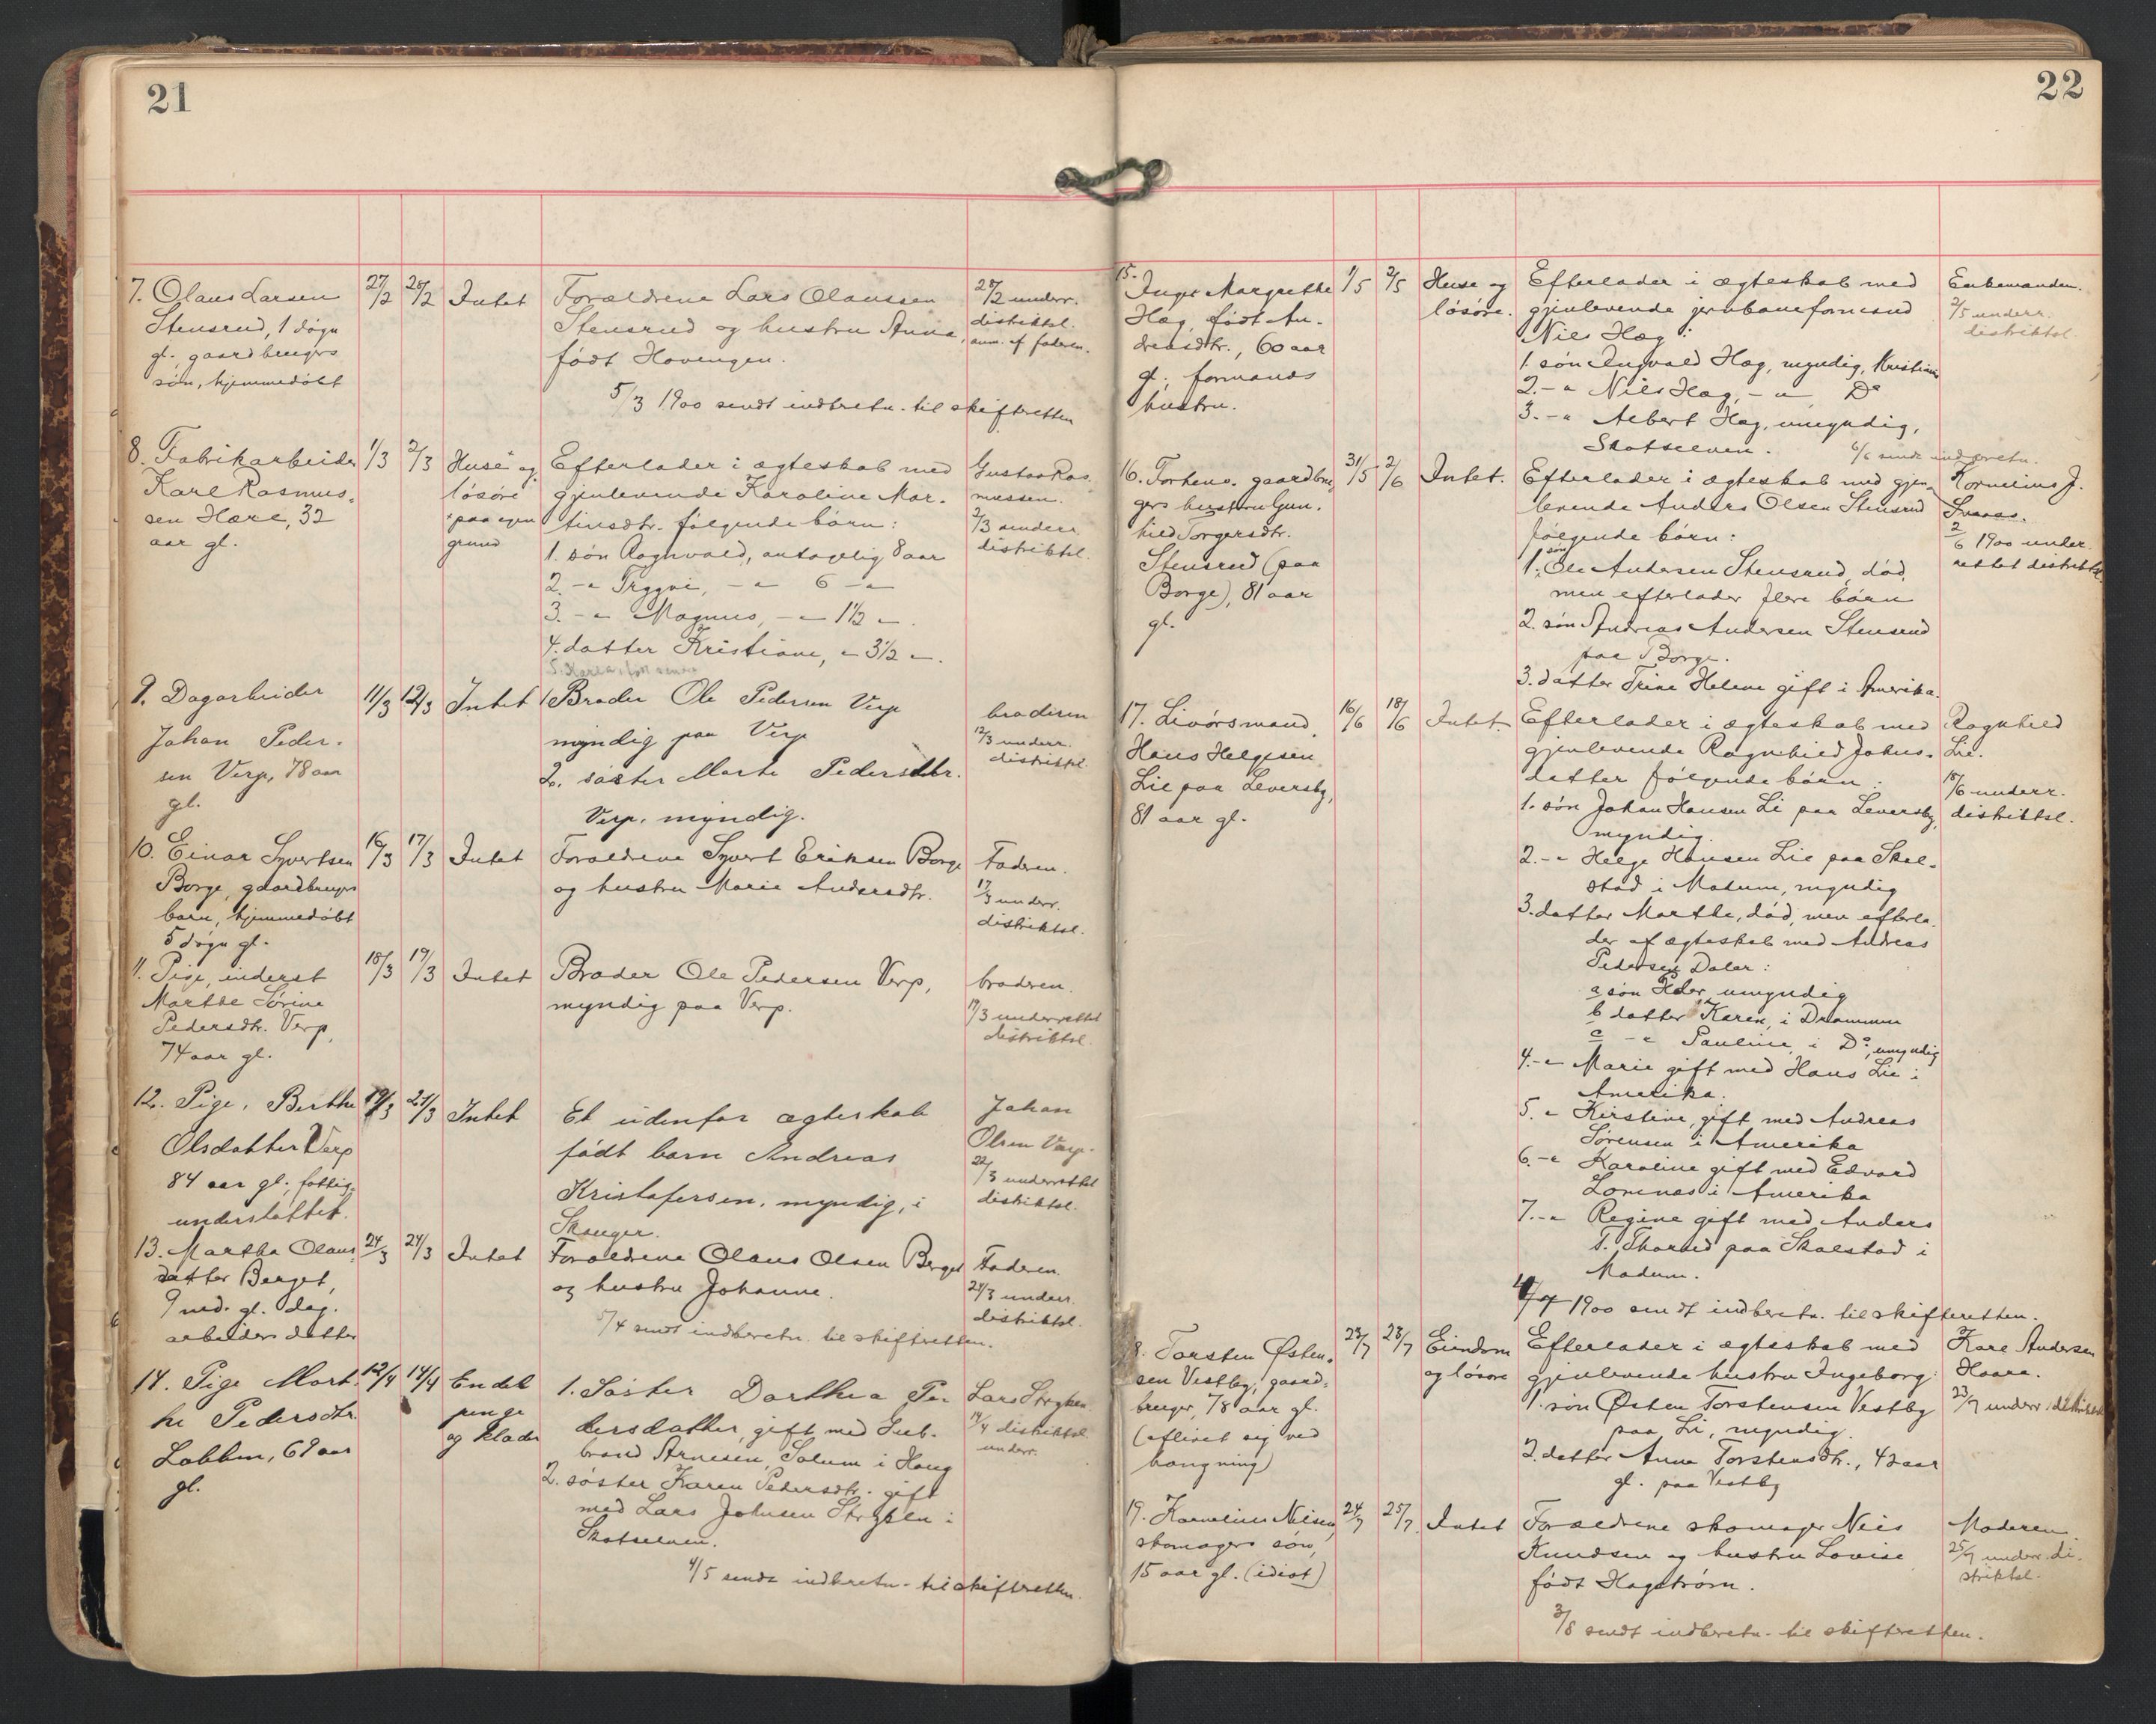 21
7. Olaus Larsen
Stensrud, 1 døgn
gl., gaardbrugers
søn, hjemmedøbt
27/2
28/2
Intet
Forældrene Lars Olaussen
Stensrud og hustru Anna,
født Hovengen.
5/3 1900 sendt indberetn. til skifteretten
28/2 underr.
distriktsl.
anm. af faderen.
8. Fabrikarbeider
Karl Rasmus-
sen Hære, 32
aar gl.
1/3
2/3
Huse og
løsøre
paa egen
grund
Efterlader i ægteskab med
gjenlevende Karoline Mar-
tinsdtr. følgende børn:
1. søn Ragnvald, antagelig 8 aar
2. -"- Tryggvi, -"- 6 -"-
3. -"- Magnus, -"- 1½ -"-
4. datter Kristiane, -"- 3½ -"-
Gustav Ras-
mussen.
2/3 underr.
distriktsl.
9. Dagarbeider
Johan Peder-
sen Verp, 78 aar
gl.
11/3
12/3
Intet
1 Broder Ole Pedersen Verp
myndig paa Verp
2. søster Marte Pedersdtr.
Verp, myndig.
broderen
12/3 underr.
distriktsl.
10. Einar Syvertsen
Borge, gaardbrugers
barn, hjemmedøbt
5 døgn gl.
16/3
17/3
Intet
Forældrene Syvert Eriksen Borge
og hustru Marie Andersdtr.
Faderen.
17/3 underr.
distriktsl.
11. Pige, inderst
Marthe Sørine
Pedersdtr. Verp,
74 aar gl.
18/3
19/3
Intet
Broder Ole Pedersen Verp,
myndig paa Verp.
broderen.
19/3 underrettet
distriktsl.
12. Pige, Berthe
Olsdatter Verp
84 aar gl., fattig-
understøttet.
19/3
21/3
Intet
Et udenfor ægteskab
født barn Andreas
Kristofersen, myndig, i
Skauger.
Johan
Olsen Verp.
22/3 underrettet
distriktsl.
13. Martha Olaus-
datter Berget,
9 md. gl. dag-
arbeiders datter
24/3
24/3
Intet
Forældrene Olaus Olsen Berget
og hustru Johanne.
5/4 sendt indberetn. til skifteretten.
Faderen.
24/3 underr.
distriktsl.
14. Pige Mart-
he Pedersdtr.
Løkken, 69 aar
gl.
12/4
14/4
En del
penge
og klæder
1. Søster Dorthea Pe-
dersdatter, gift med Gul-
brand Arnesen, Solum i Haug
2. søster Karen Pedersdtr. gift
med Lars Johnsen Stryken i
Skotselven.
4/5 sendt indberetn. til skifteretten.
Lars Stryken.
14/4 distriktsl.
underr.
22
15.
Inger Margrethe
Hæg, født An-
dreasdtr., 60 aar
gl., formands
hustru.
1/5
2/5
Huse og
løsøre.
Efterlader i ægteskab med
gjenlevende jernbaneformand
Niels Hæg:
1. søn Ingvald Hæg, myndig, Kristiania
2. -"- Nils Hæg, -"- Do
3. -"- Albert Hæg, umyndig,
Skotselven.
6/6 sendt indberetn.
Enkemanden.
2/5 underr.
distriktsl.
16. Forhenv. gaardbru-
gers hustru Gun-
hild Torgersdtr.
Stensrud (paa
Borge), 81 aar
gl.
31/5
2/6
Intet.
Efterlader i ægteskab med gjen-
levende Anders Olsen Stensrud
følgende børn:
1. søn Ole Andersen Stensrud, død,
men efterlader flere børn
2. søn Andreas Andersen Stensrud
paa Borge.
3. datter Trine Helene gift i Amerika.
Kornelius J.
2/6 1900 under-
rettet distriktsl.
17. Livørsmand,
Hans Helgesen
Lie paa Leversby,
81 aar gl.
16/6
18/6
Intet.
Efterlader i ægteskab med
gjenlevende Ragnhild Johns-
datter følgende børn:
1. søn Johan Hansen Li paa Leversby,
myndig.
2. -"- Helge Hansen Lie paa Skal-
stad i Modum, myndig
3. datter Marthe, død, men efterla-
der af ægteskab med Andreas
Pedersen Daler:
a søn Peder, umyndig
b datter Karen, i Drammen
c -"- Pauline, i Do, umyndig
4. -"- Marie gift med Hans Lie i
Amerika.
5. -"- Kirstine, gift med Andreas
Sørensen i Amerika
6. -"- Karoline gift med Edvard
Lornæs i Amerika
7. -"- Regine gift med Anders
T. Thorud paa Skalstad i
Modum.
4/7 1900 sendt indberetn. til skifteretten.
Ragnhild
Lie.
18/6 underr.
distriktsl.
18. Torsten Østen-
sen Vestby, gaard-
bruger, 78 aar gl.
(aflivet sig ved
hængning)
23/7
23/7
Eiendom
og løsøre
Efterlader i ægteskab med
gjenlevende hustru Ingeborg:
1. søn Østen Torstensen Vestby
paa Li, myndig.
2. datter Anna Torstensdtr., 42 aar
gl. paa Vestby
Karl Andersen
Haare.
23/7 underr. distriktsl.
19. Kornelius Nilsen,
skomagers søn,
15 aar gl. (idiot)
24/7
25/7
Intet
Forældrene skomager Nils
Knudsen og hustru Lovise
født Hagstrøm.
3/8 sendt indberetn. til skifteretten.
Moderen.
25/7 underr. di-
striktsl.